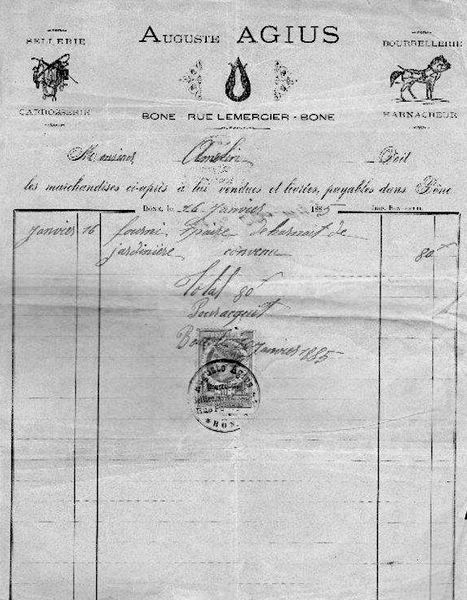 SELLERIE
AUGUSTE AGIUS
BOURRELLERIE
CARROSSERIE
HARNACHEUR
BONE · RUE LEMERCIER · BONE
Monsieur Amélin Doit
les marchandises ci-après à lui vendues et livrées, payables dans Bône
BONE, le 26 Janvier 1885
janvier 16 fourni 1 paire de harnais de
jardinière convenu 80
Total 80f
Pour acquit
Bône le Janvier 1885
AGIUS
BON